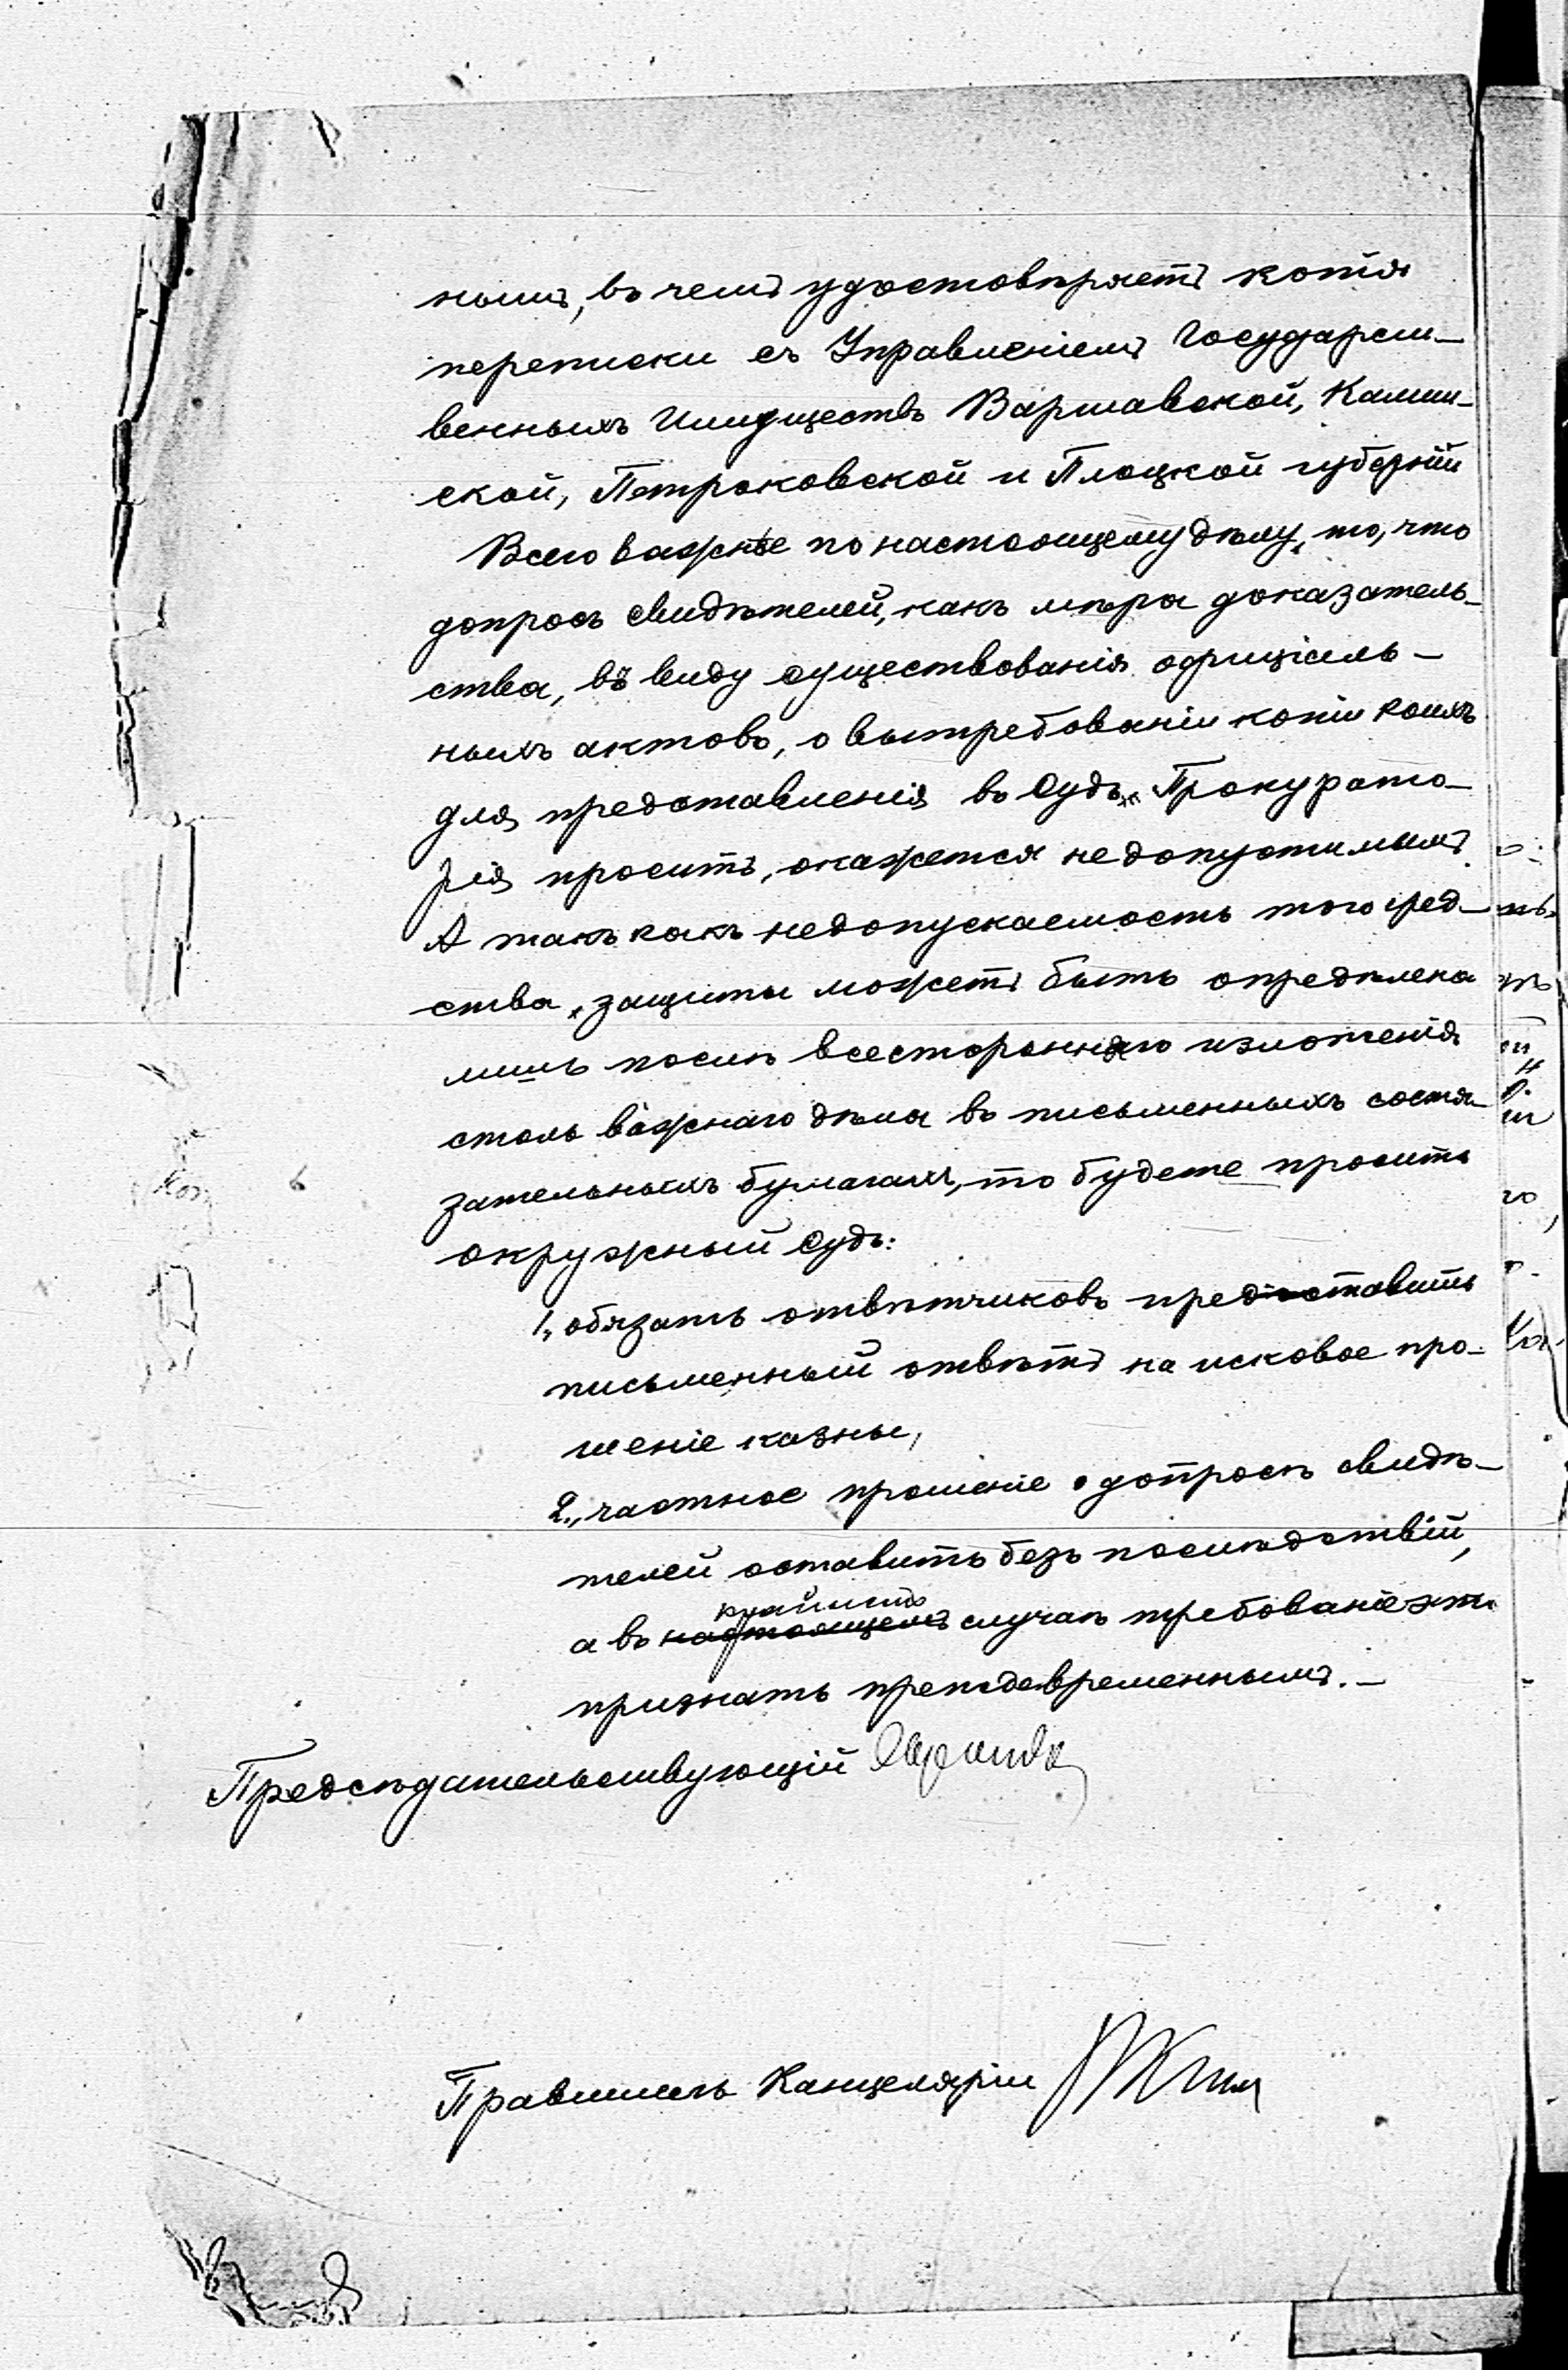 нымъ, въ чемъ удостовѣряетъ копія
переписки съ Управленіемъ Государст-
венныхъ Имуществъ Варшавской, Калиш-
ской, Петроковской и Плоцкой губерній
Всего важнѣе по настоящему дѣлу, то, что
допросъ свидѣтелей, какъ мѣра доказатель-
ства, въ виду существованія офиціаль-
ныхъ актовъ, о вытребованіи копіи коихъ
для представленія въ Судъ Прокурато-
рія проситъ, окажется недопустимымъ.
А такъ какъ недопускаемость того сред-
ства, защиты можетъ быть опредѣлена
лишь послѣ всесторонняго изложенія
столь важнаго дѣла въ письменныхъ состя-
зательныхъ бумагахъ, то будете просить
окружный Судъ:
1., обязать отвѣтчиковъ представить
письменный отвѣтъ на исковое про-
шеніе казны,
2., частное прошеніе о допросѣ свидѣ-
телей оставить безъ послѣдствій,
крайнемъ
а въ настоящемъ случаѣ требованіе это
признать преждевременнымъ. -
Предсѣдательствующій
Правитель Канцеляріи